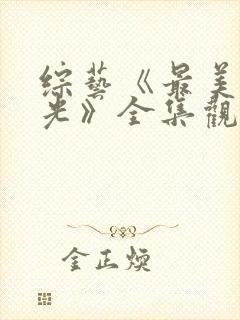 綜藝《最美
光》全集觀
金正煥